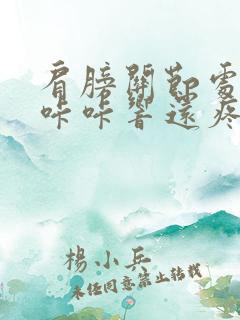 肩膀關節處
咔咔響還疼
楊小兵
未經同意禁止轉載